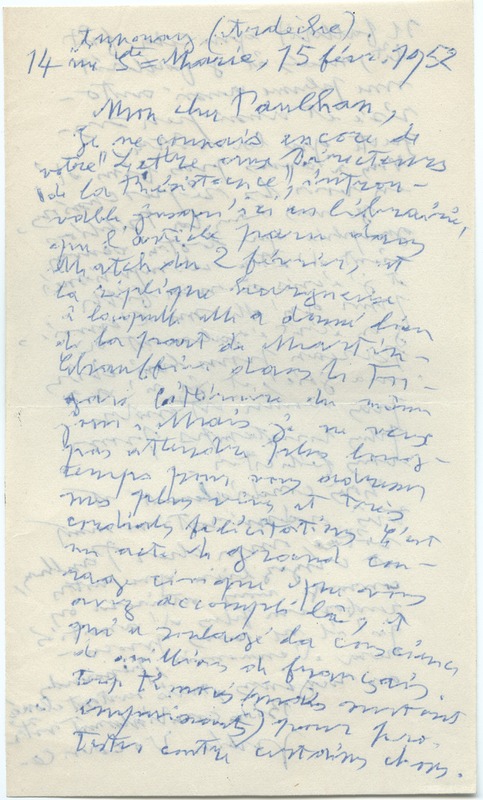 Annonay (Ardèche).
14 rue Ste Marie, 15 févr. 1952
Mon cher Paulhan,
Je ne connais encore de
votre "Lettre aux Directeurs
de la Résistance", introu-
vable jusqu'ici en librairie,
que l'article paru dans
Match du 2 février, et
la réplique
à laquelle elle a donné lieu
de la part de Martin-
Chauffier dans le Fi-
garo littéraire du même
jour. Mais je ne veux
pas attendre plus long-
temps pour vous adresser
mes plus vives et très
cordiales félicitations. C'est
un acte de grand cou-
rage civique que vous
avez accompli là, et
qui a soulagé la conscience
de millions de français.
trop
impuissants) pour pro-
tester contre certaines choses.